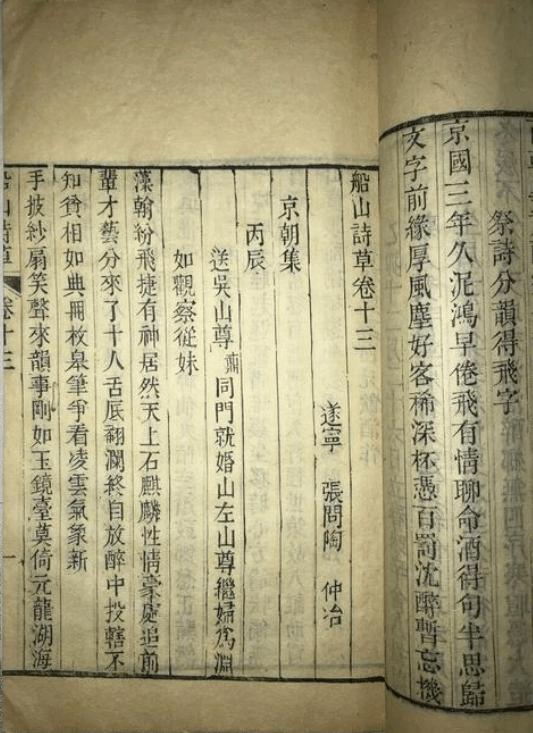 祭詩分韻得飛字
京國三年久泥鴻早倦飛有情聊命酒得句半思歸
文字前緣厚風塵好客稀深杯憑百罰沈醉暫忘機
船山詩草卷十三
遂寧 張問陶 仲冶
京朝集
丙辰
送吳山尊鼒同門就婚山左山尊繼婦爲淵
如觀察從妹
藻翰紛飛捷有神居然天上石麒麟性情豪處追前
輩才藝分來了十人舌底翻瀾終自放醉中投轄不
知貧相如典冊枚皋筆爭看凌雲氣象新
手披紗扇笑聲來韻事剛如玉鏡臺莫倚元龍湖海
船山詩草 卷十三 一